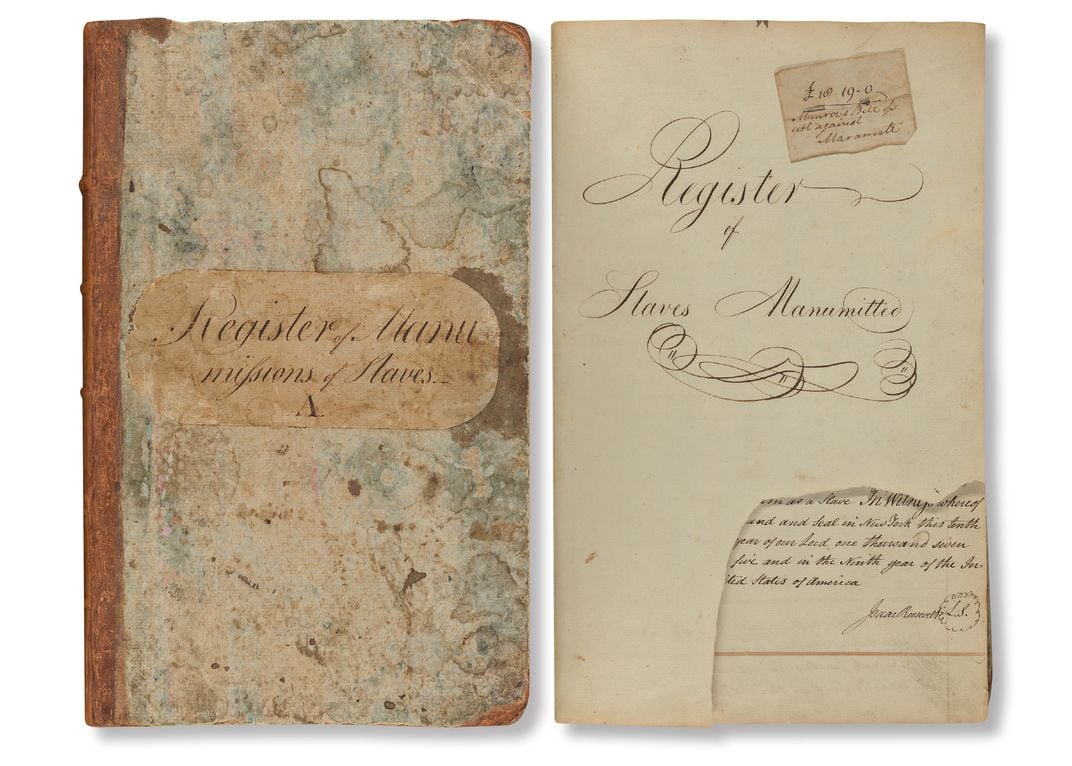 Register of Manu
miſsions of Slaves.
A
£18. 19-0
Munroe's Bill of
cost against
Register
of
Slaves Manumitted
as a Slave In Witneſs whereof
and and Seal in New York this tenth
year of our Lord one thousand seven
five and in the Ninth year of the In-
ted States of America
Isaac Roosevelt L.S.